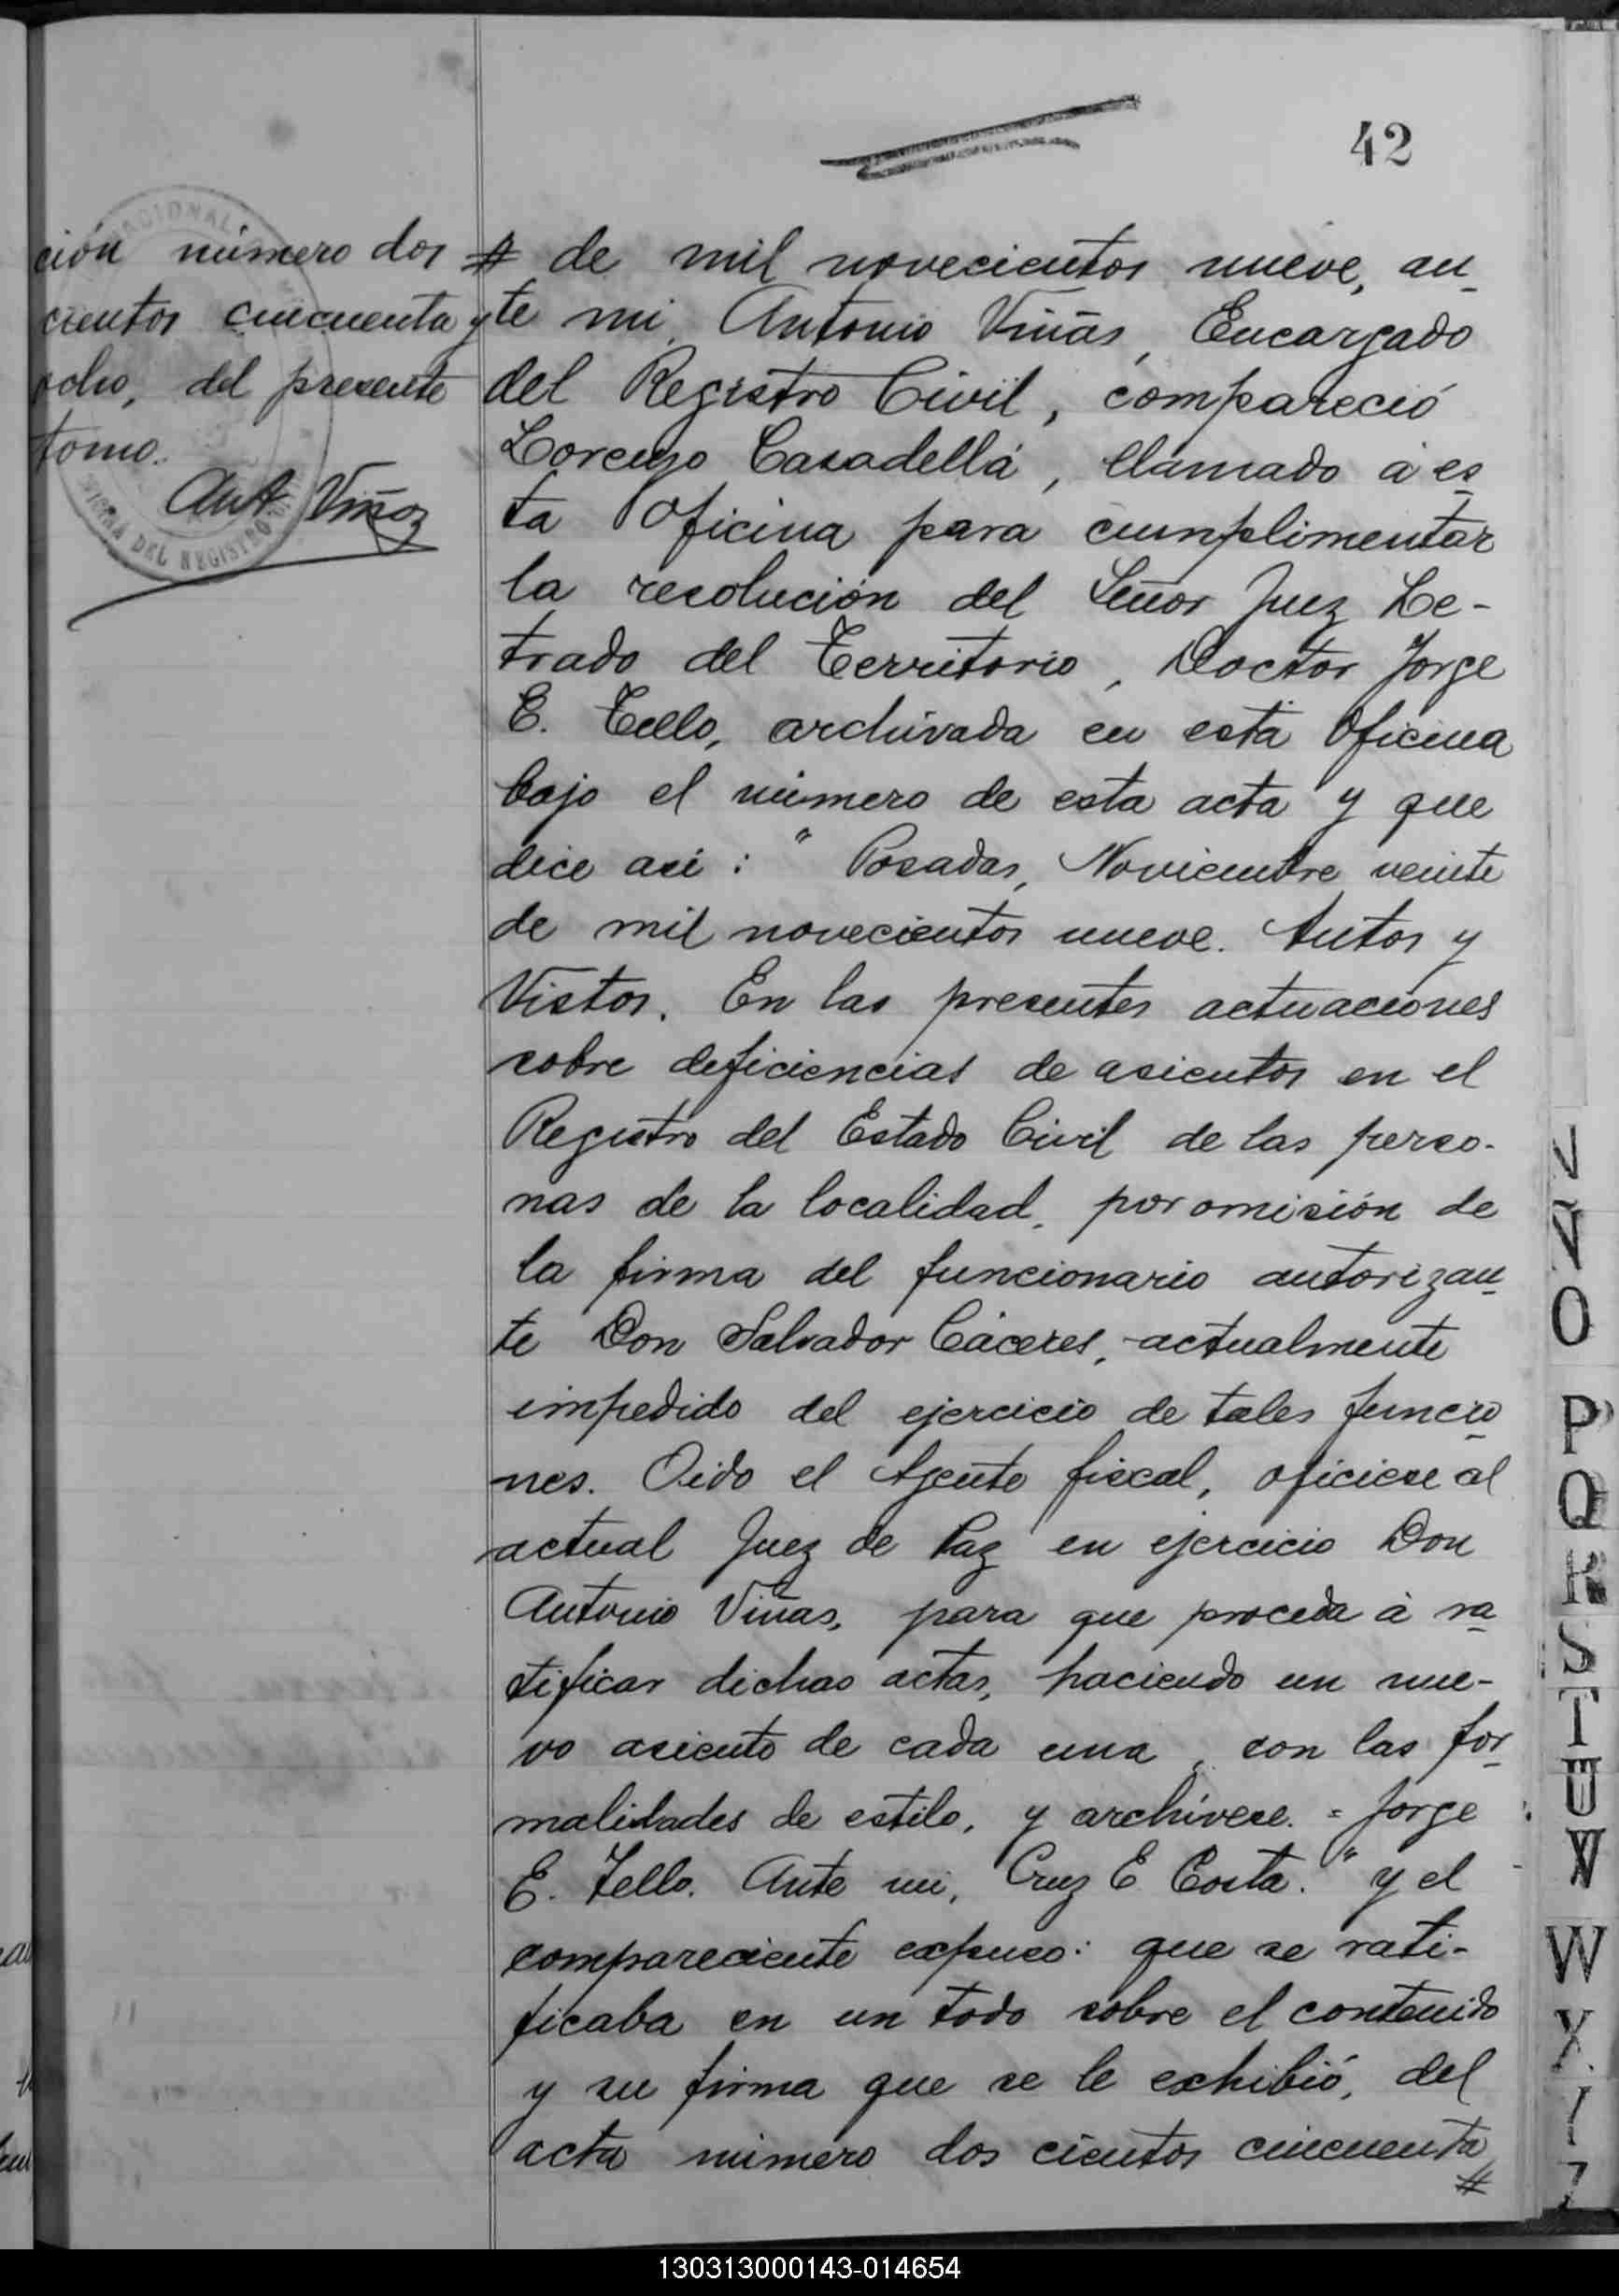 42
ción número dos
cientos cincuenta y
ocho, del presente
tomo.
Ant. Viñas
DEL REGISTRO
# de mil novecientos nueve, an_
te mi, Antonio Viñas, Encargado
del Registro Civil, compareció
Lorenzo Casadellá, llamado á es_
ta Oficina para cumplimentar
la resolución del Señor Juez Le-
trado del Territorio, Doctor Jorge
E. Tello, archivada en esta Oficina
bajo el número de esta acta y que
dice asi: " Posadas, Noviembre veinte
de mil novecientos nueve. Autos y
Vistos. En las presentes actuaciones
sobre deficiencias de asientos en el
Registro del Estado Civil de las perso-
nas de la localidad, por omisión de
la firma del funcionario autorizan_
te Don Salvador Cáceres, actualmente
impedido del ejercicio de tales funcio_
nes. Oido el Agente fiscal, oficiese al
actual Juez de Paz en ejercicio Don
Antonio Viñas, para que proceda á ra_
tificar dichas actas, haciendo un nue-
vo asiento de cada una, con las for_
malidades de estilo, y archívese. = Jorge
E. Tello. Ante mi, Cruz E Costa." y el
compareciente expuso: que se rati-
ficaba en un todo sobre el contenido
y su firma que se le exhibió, del
acta número dos cientos cincuenta
#
N
Ñ
O
P
Q
R
S
T
U
V
W
X
Y
Z
130313000143-014654